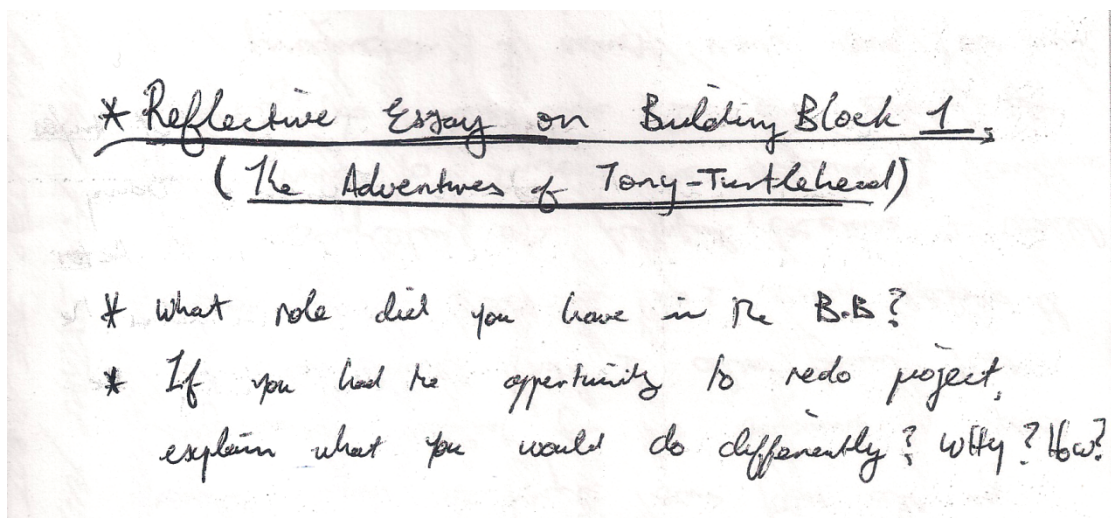 * Reflective Essay on Building Block 1,
(The Adventures of Tony-Turtlehead)
* What role did you have in the B.B?
* If you had the oppertunity to redo project,
explain what you would do differently? Why? How?